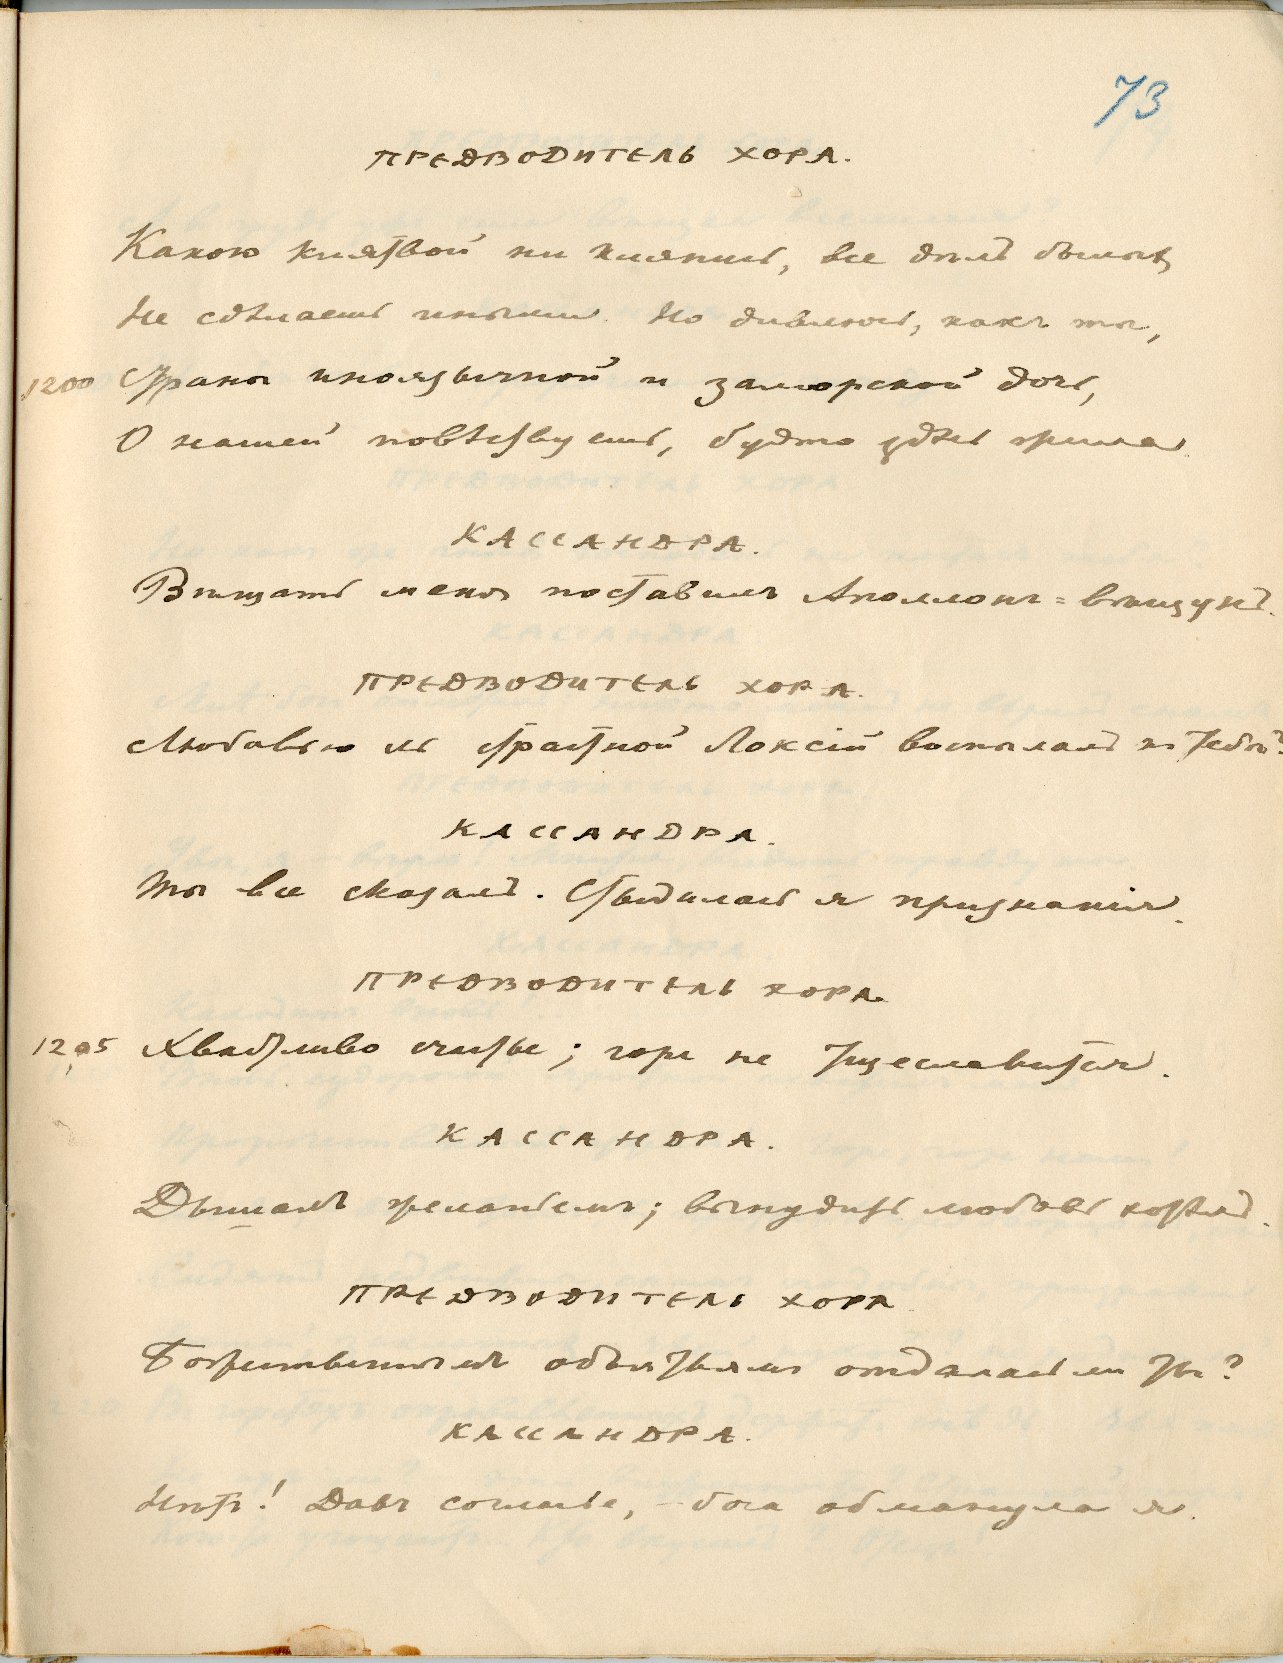 73
ПРЕДВОДИТЕЛЬ ХОРА.
Какою клятвой ни клянись, все дѣлъ былыхъ
Не сдѣлаешь иными. Но дивлюсь, какъ ты,
1200 Страны иноязычной и заморской дочь,
О нашей повѣствуешь, будто здѣсь жила.
КАССАНДРА.
Вѣщать меня поставилъ Аполлонъ-вѣщунъ.
ПРЕДВОДИТЕЛЬ ХОРА.
Любовью ль страстной Локсій воспылалъ къ тебѣ?
КАССАНДРА.
Ты все сказалъ. Стыдилась я признанія.
ПРЕДВОДИТЕЛЬ ХОРА.
1205 Хвастливо счастье; горе не тщеславится.
КАССАНДРА.
Дышалъ желаньемъ; вынудить любовь хотѣлъ.
ПРЕДВОДИТЕЛЬ ХОРА
Божественнымъ объятьямъ отдалась ли ты?
КАССАНДРА.
Нѣтъ! Давъ согласье, – бога обманула я.